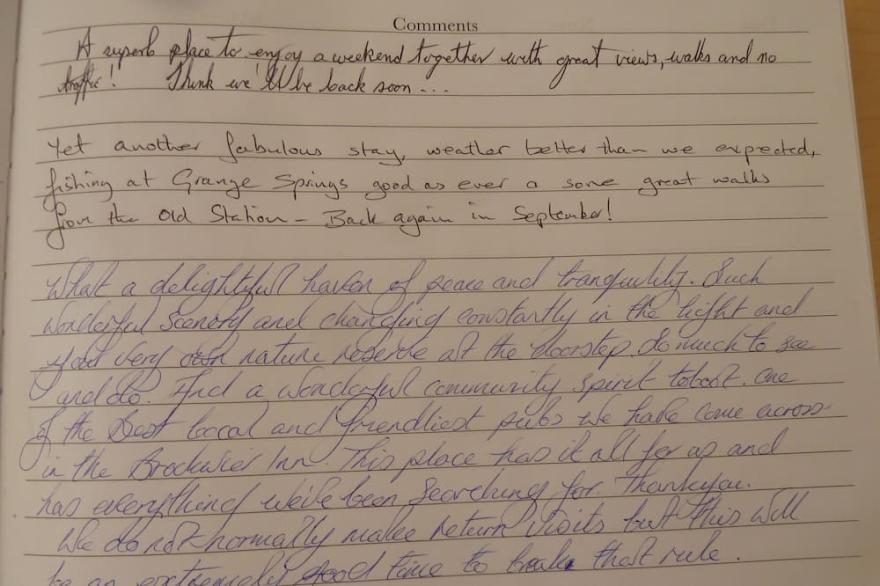 Comments
A superb place to enjoy a weekend together with great views, walks and no
traffic! Think we'll be back soon...
Yet another fabulous stay, weather better than we expected,
fishing at Grange Springs good as ever & some great walks
from the Old Station - Back again in September!
What a delightful haven of peace and tranquility. Such
wonderful scenery and changing constantly in the light and
your very own nature reserve at the doorstep. So much to see
and do. And a wonderful community spirit to boot. One
of the best local and friendliest pubs we have come across
in the Brockweir Inn. This place has it all for us and
has everything we've been searching for. Thankyou.
We do not normally make return visits but this will
be an extremely good time to break that rule.